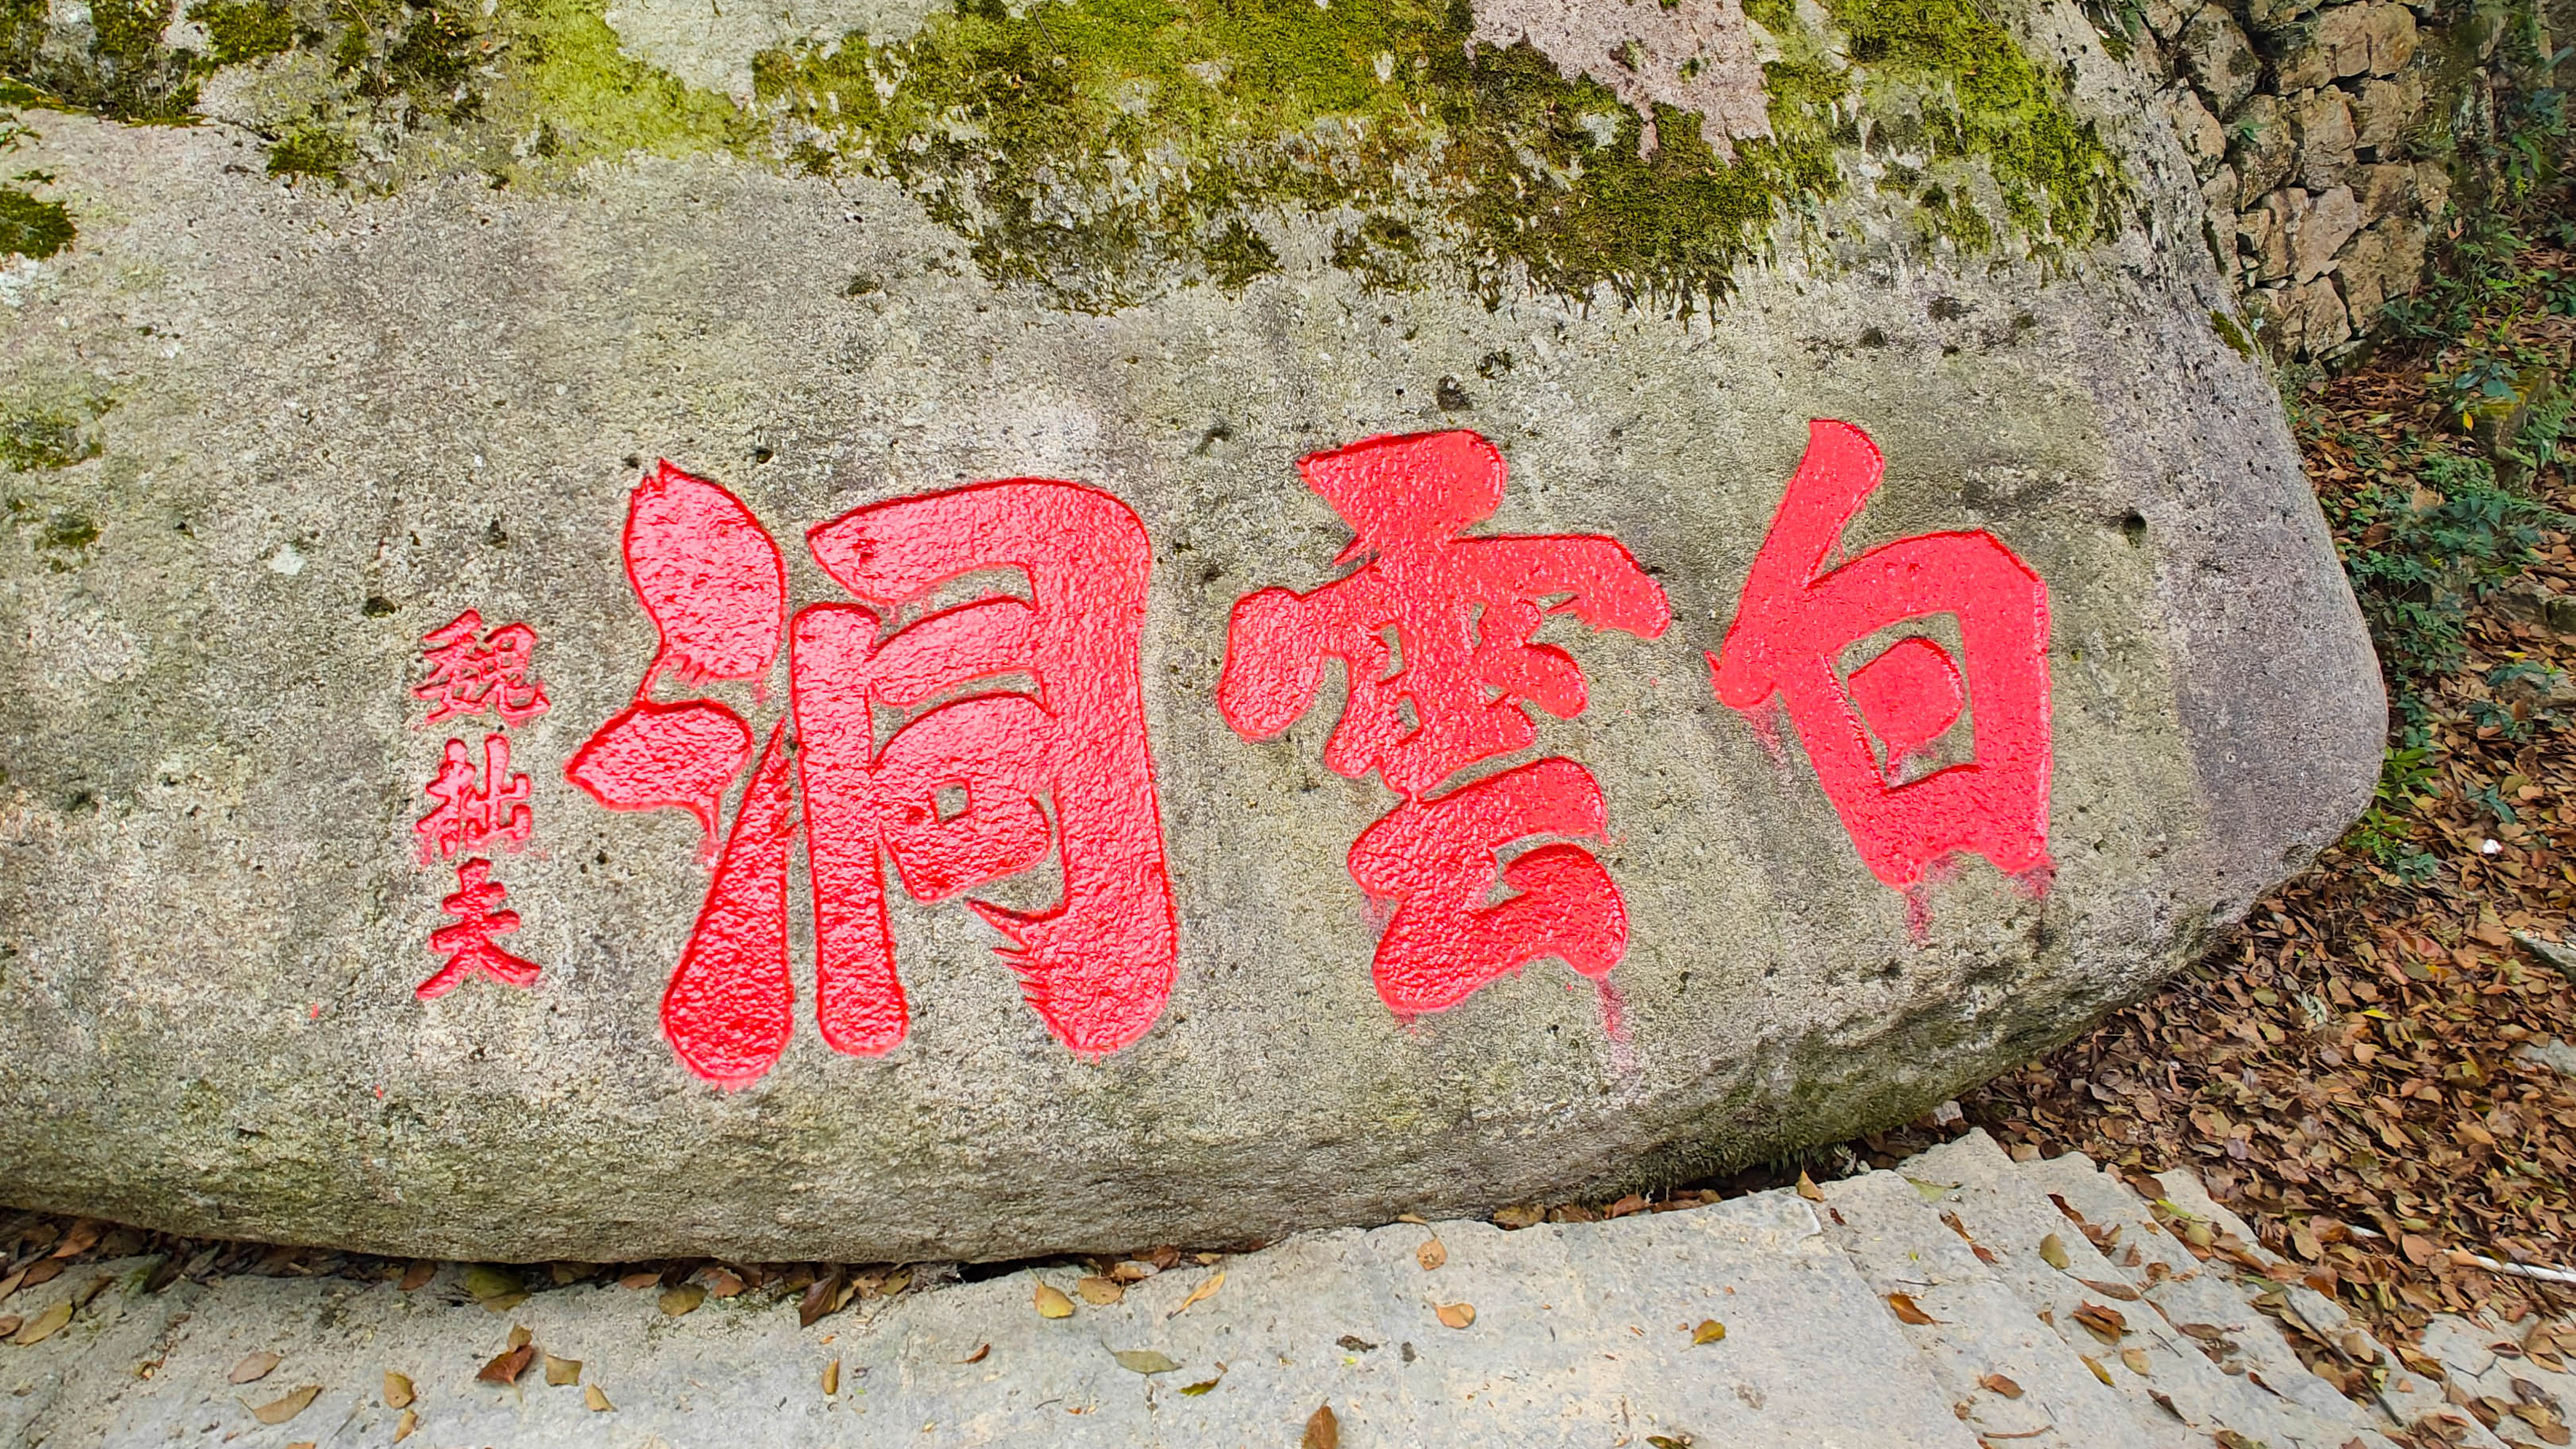 白雲洞
魏拙夫